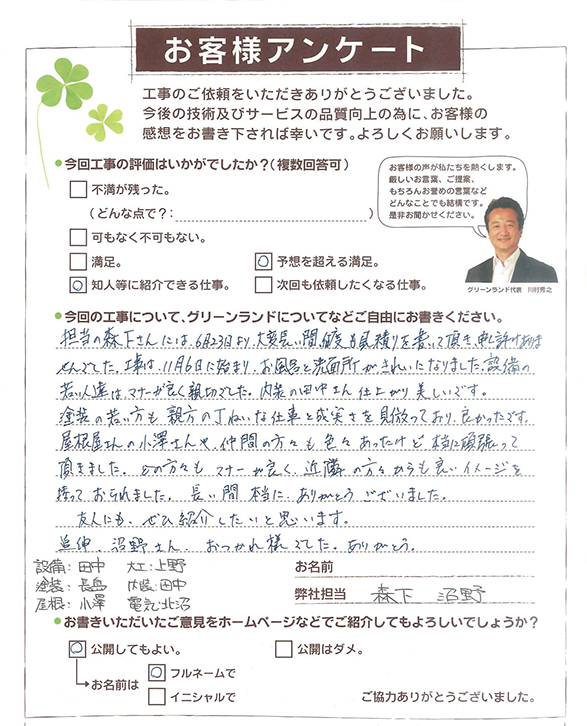 お客様アンケート
工事のご依頼をいただきありがとうございました。
今後の技術及びサービスの品質向上の為に、お客様の
感想をお書き下されば幸いです。よろしくお願いします。
●今回工事の評価はいかがでしたか?(複数回答可)
お客様の声が私たちを熱くします。
厳しいお言葉、ご提案、
もちろんお誉めの言葉など
どんなことでも結構です。
是非お聞かせください。
グリーンランド代表 川村秀之
□ 不満が残った。
(どんな点で?: )
□ 可もなく不可もない。
□ 満足。
☑ 予想を超える満足。
☑ 知人等に紹介できる仕事。
□ 次回も依頼したくなる仕事。
●今回の工事について、グリーンランドについてなどご自由にお書きください。
担当の森下さんには、6月23日より、大変長い間、何度も見積りを書いて頂き、申し訳ありま
せんでした。工事は11月6日に始まり、お風呂と洗面所がきれいになりました。設備の
若い人達は、マナーが良く親切でした。内装の田中さん仕上がり美しいです。
塗装の若い方も親方の丁ねいな仕事と成実さを見倣っており、良かったです。
屋根屋さんの小澤さんや、仲間の方々も色々あったけど本当に頑張って
頂きました。どの方々もマナーが良く、近隣の方々からも良いイメージを
持っておられました。長い間本当に、ありがとうございました。
友人にも、ぜひ紹介したいと思います。
追伸、沼野さん、おつかれ様でした。ありがとう。
設備:田中 大工:上野
塗装:長島 内装:田中
屋根:小澤 電気:北沼
お名前
弊社担当 森下 沼野
●お書きいただいたご意見をホームページなどでご紹介してもよろしいでしょうか?
☑ 公開してもよい。
□ 公開はダメ。
お名前は ☑ フルネームで
□ イニシャルで
ご協力ありがとうございました。